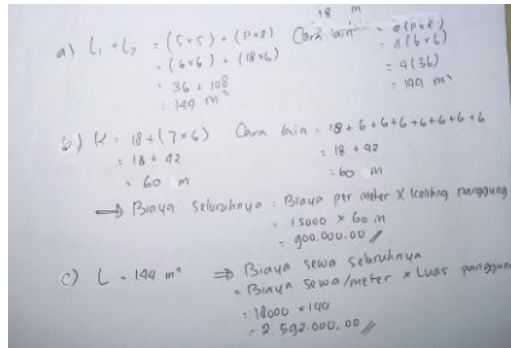 18 m
a) L₁ + L₂ = (5×5) + (P×l) Cara lain = 4(P×l)
= (6×6) + (18×6) = 4(6×6)
= 36 + 108 = 4(36)
= 144 m² = 144 m²
b) K = 18+(7×6) Cara lain = 18+6+6+6+6+6+6+6
= 18 + 42 = 18 + 42
= 60 m = 60 m
⇒ Biaya seluruhnya = Biaya per meter × keliling panggung
= 15000 × 60 m
= 900.000.00 //
c) L = 144 m² ⇒ Biaya sewa seluruhnya
= Biaya sewa/meter × Luas panggung
= 18000 × 144
= 2.592.000,00 //